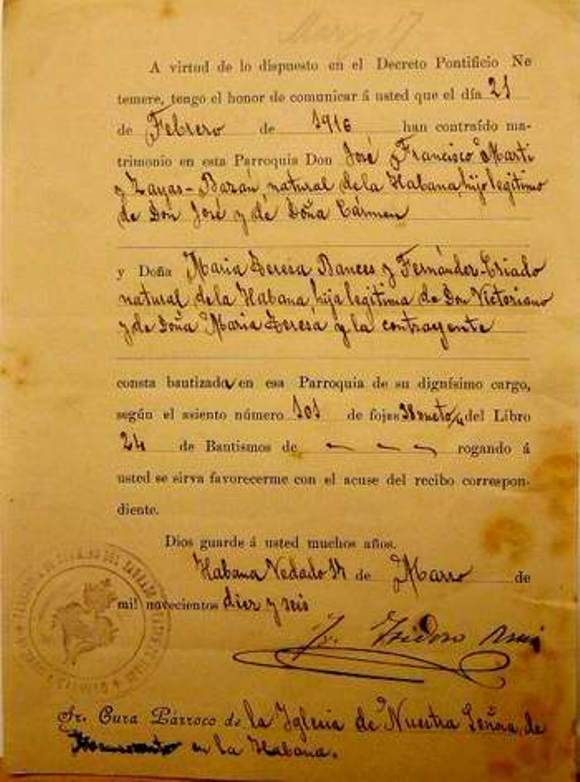 Marzo 17
A virtud de lo dispuesto en el Decreto Pontificio Ne
temere, tengo el honor de comunicar á usted que el día 21
de Febrero de 1916 han contraído ma-
trimonio en esta Parroquia Don José Francisco Marti
y Zayas-Bazán, natural de la Habana, hijo legitimo
de Don José y de Doña Cármen
y Doña Maria Teresa Bances y Fernández-Criado
natural de la Habana, hija legitima de Don Victoriano
y de Doña Maria Teresa y la contrayente
consta bautizada en esa Parroquia de su dignísimo cargo,
según el asiento número 101 de fojas 38 vueto del Libro
24 de Bautismos de — — — rogando á
usted se sirva favorecerme con el acuse del recibo correspon-
diente.
Dios guarde á usted muchos años.
Habana Vedado 14 de Marzo de
mil novecientos diez y seis
Fr. Isidoro Ruiz
Sr. Cura Párroco de la Iglesia de Nuestra Señora de
en la Habana.